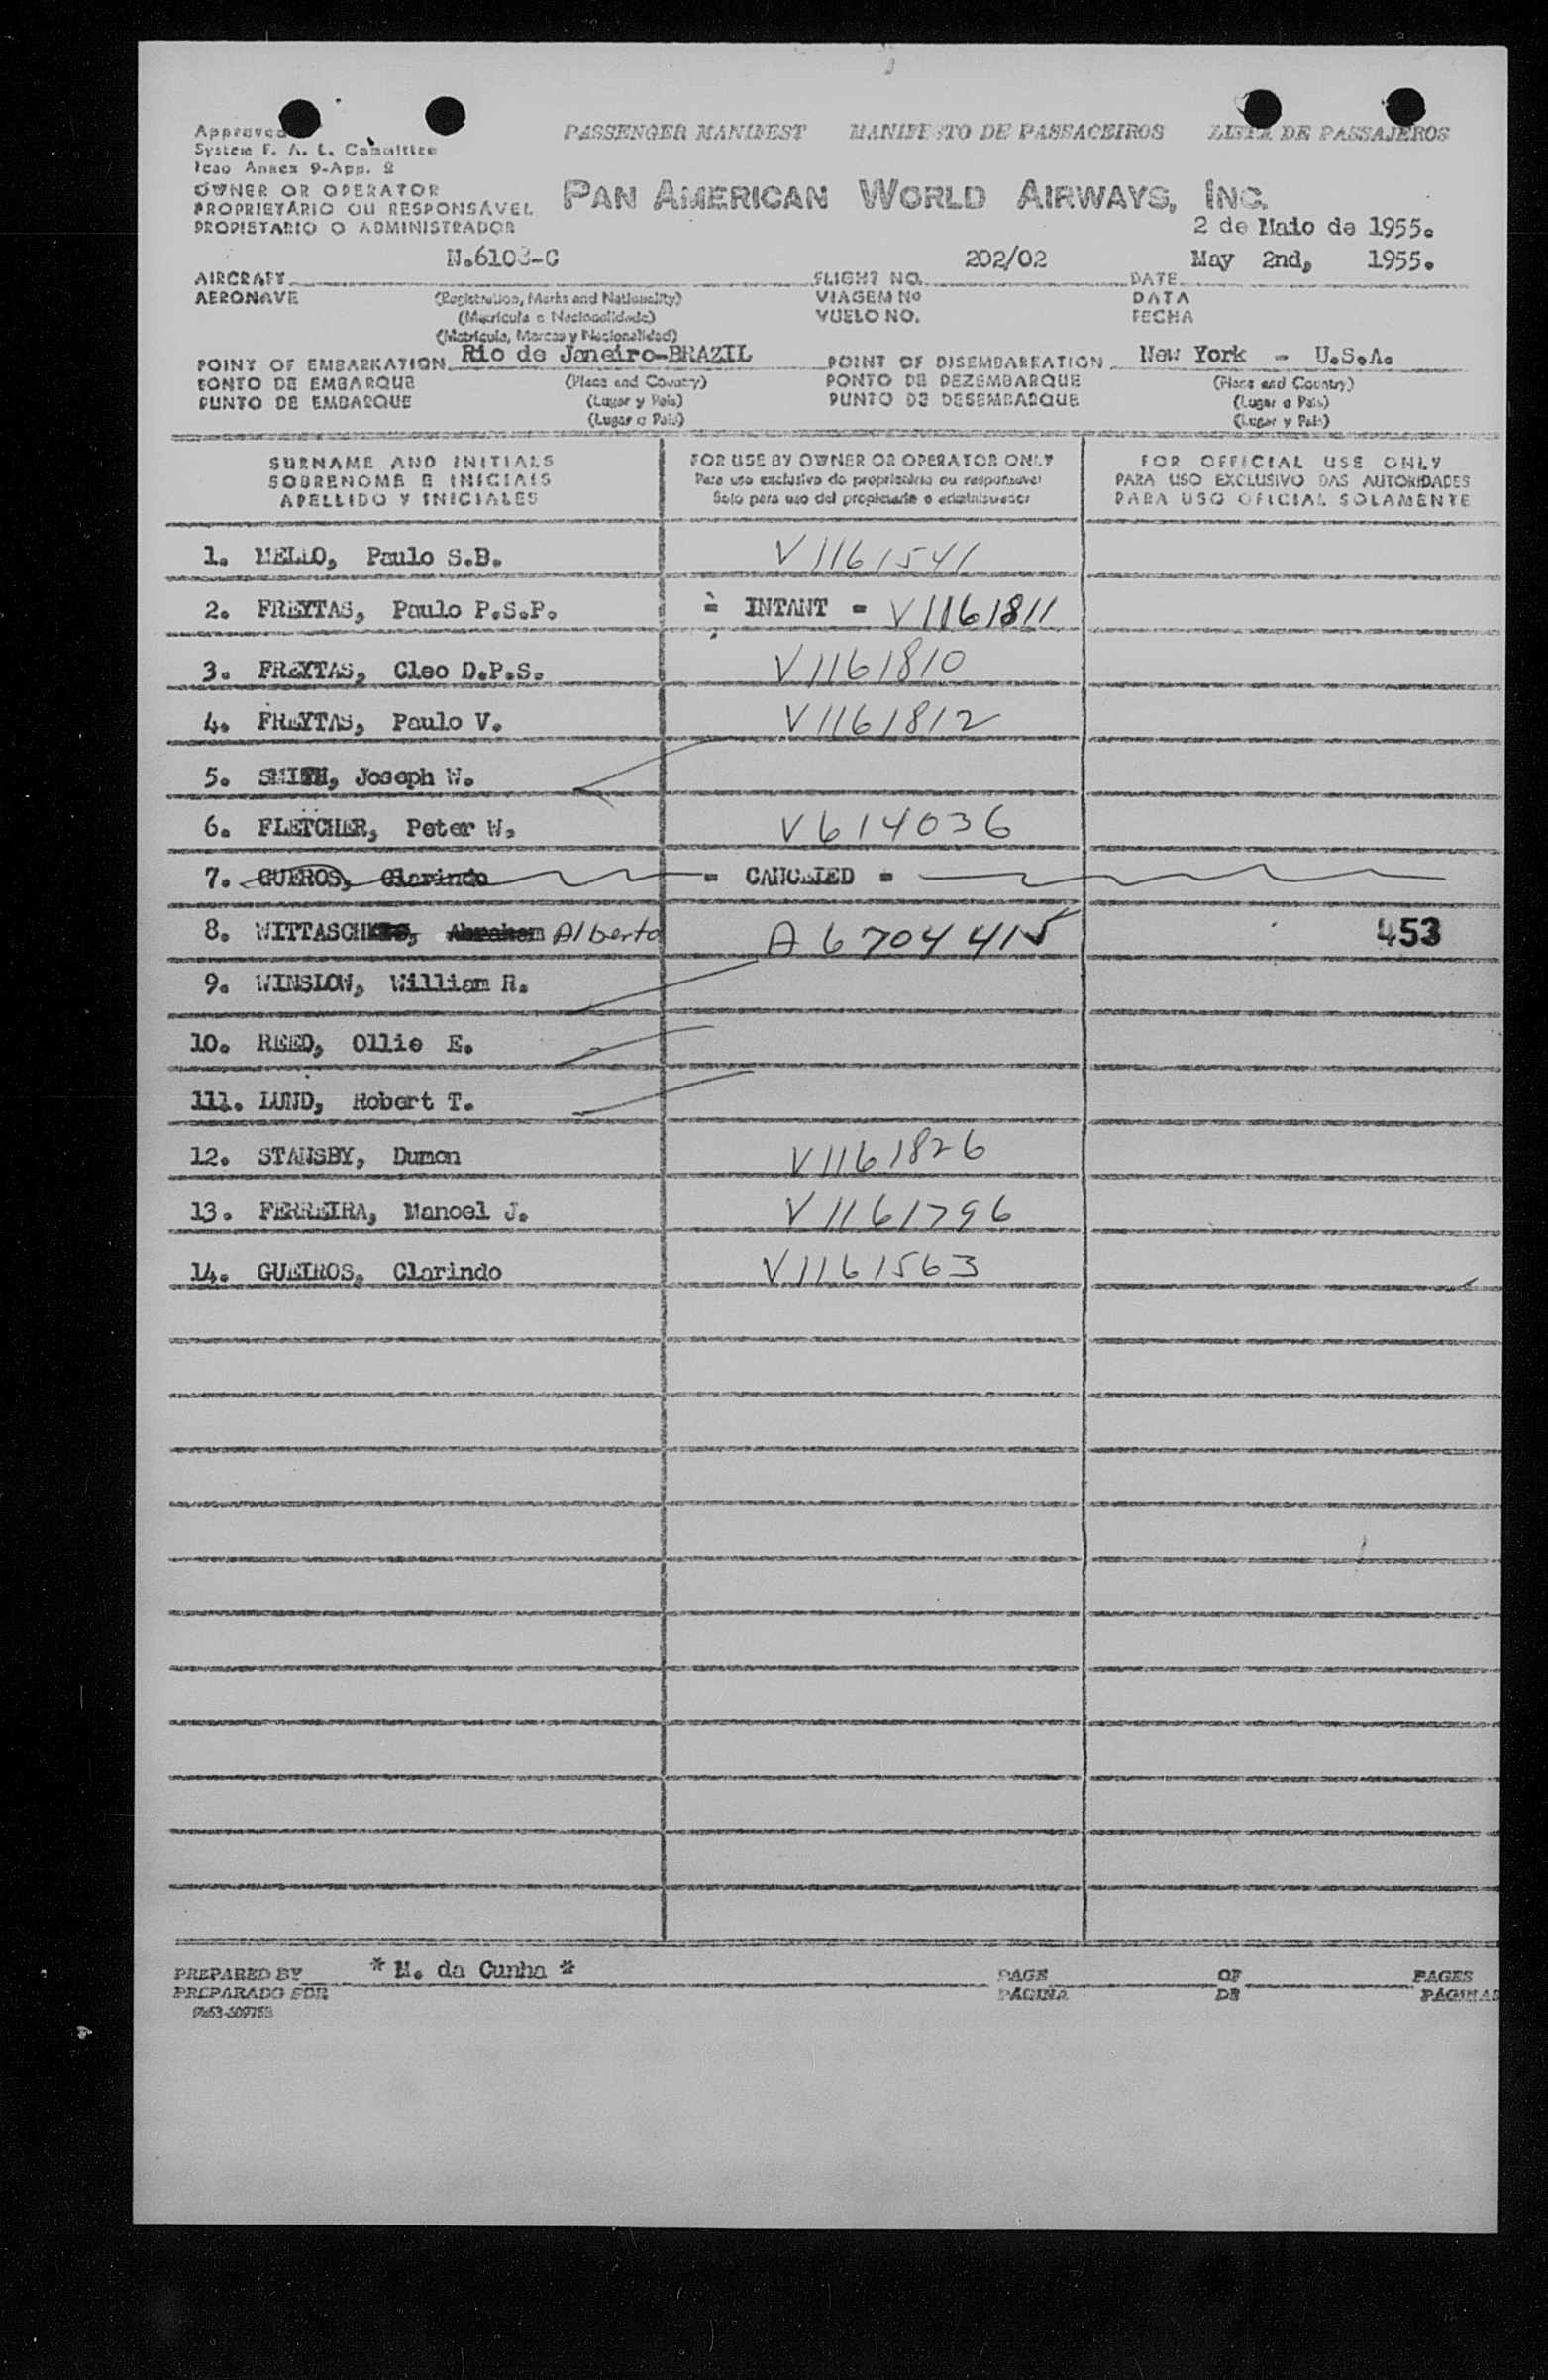 Approved
PASSENGER MANIFEST MANIFESTO DE PASSAGEIROS LISTA DE PASSAJEROS
System F. A. L. Committee
Icao Annex 9-App. 2
OWNER OR OPERATOR
PROPRIETÁRIO OU RESPONSÁVEL
PROPIETARIO O ADMINISTRADOR
PAN AMERICAN WORLD AIRWAYS, INC.
2 de Maio de 1955.
N.6103-C 202/02 May 2nd, 1955.
AIRCRAFT FLIGHT NO. DATE
AERONAVE (Registration, Marks and Nationality) VIAGEM Nº DATA
(Matrícula e Nacionalidade) VUELO NO. FECHA
(Matrícula, Marcas y Nacionalidad)
POINT OF EMBARKATION Rio de Janeiro-BRAZIL POINT OF DISEMBARKATION New York - U.S.A.
PONTO DE EMBARQUE (Place and Country) PONTO DE DEZEMBARQUE (Place and Country)
PUNTO DE EMBARQUE (Lugar y País) PUNTO DE DESEMBARQUE (Lugar e País)
(Lugar e País) (Lugar y País)
SURNAME AND INITIALS FOR USE BY OWNER OR OPERATOR ONLY FOR OFFICIAL USE ONLY
SOBRENOME E INICIAIS Para uso exclusivo do proprietário ou responsavel PARA USO EXCLUSIVO DAS AUTORIDADES
APELLIDO Y INICIALES Solo para uso del propietario o administrador PARA USO OFICIAL SOLAMENTE
1. MELLO, Paulo S.B. V1161541
2. FREYTAS, Paulo P.S.P. = INTANT = V1161811
3. FREYTAS, Cleo D.P.S. V1161810
4. FREYTAS, Paulo V. V1161812
5. SMITH, Joseph W.
6. FLETCHER, Peter W. V614036
7. GUEROS, Clarindo = CANCELED =
8. WITTASCHEK, Abraham Alberto A6704415 453
9. WINSLOW, William R.
10. REED, Ollie E.
111. LUND, Robert T.
12. STANSBY, Dumon V1161826
13. FERREIRA, Manoel J. V1161796
14. GUEIROS, Clarindo V1161563
PREPARED BY * M. da Cunha * PAGE OF PAGES
PREPARADO POR PÁGINA DE PÁGINAS